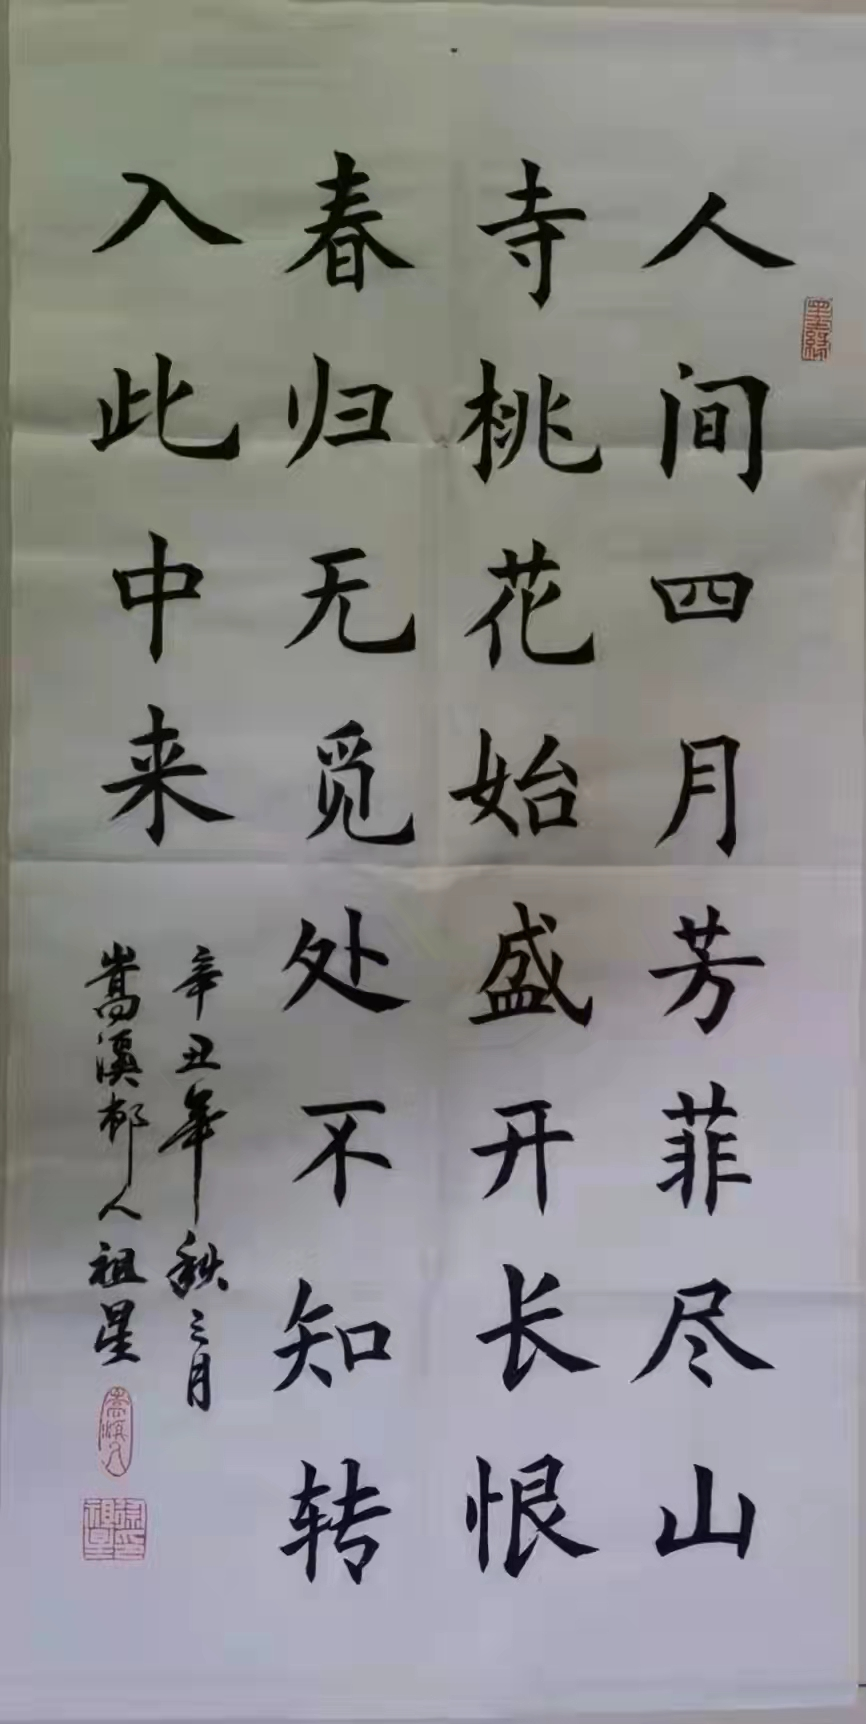 人间四月芳菲尽山
寺桃花始盛开长恨
春归无觅处不知转
入此中来
辛丑年秋之月
嵩溪邨人祖星
墨缘